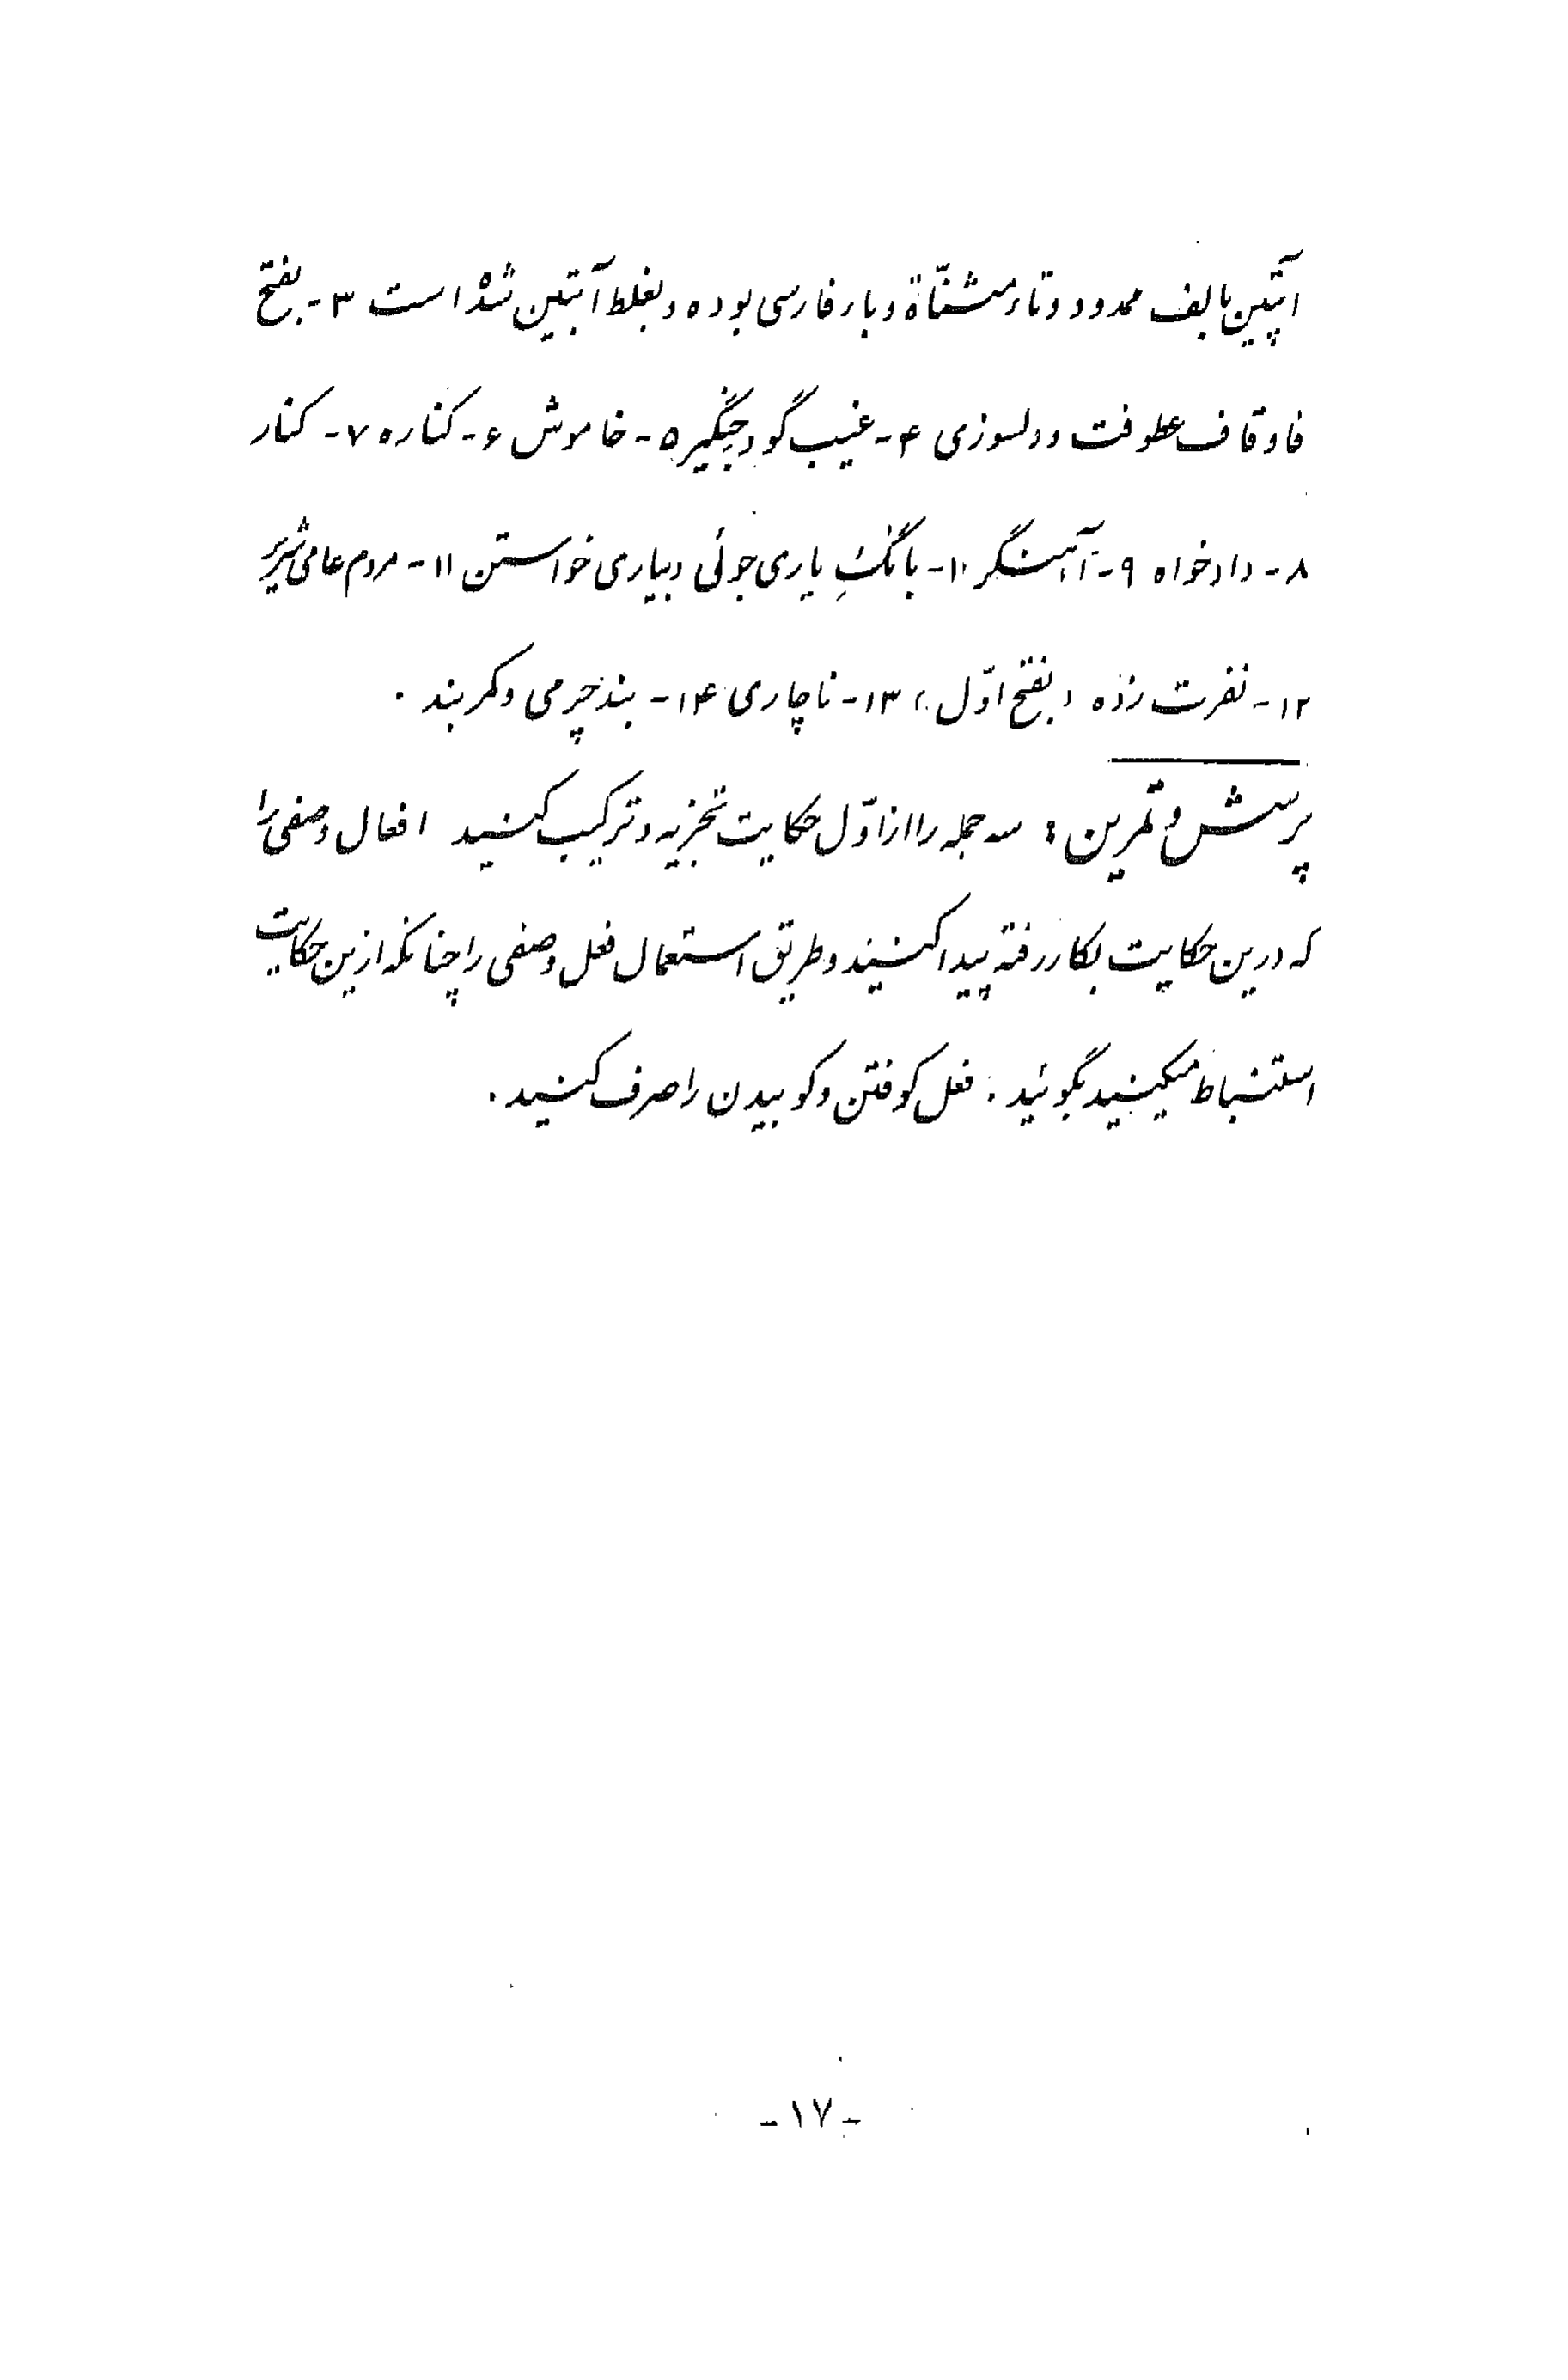 آتپین بالف ممدود و تاء مثنّاة و باء فارسی بوده و بغلط آبتین شده است ۳- بفتح
فا و قاف عطوفت و دلسوزی ۴- غیب گو و جنگیر ۵- خاموش ۶- کناره ۷- کنار
۸- دادخواه ۹- آهنگر ۱۰- بانگِ یاری جوئی و بیاری خواستن ۱۱- مردم عامی شریر
۱۲- نفرت زده (بفتح اوّل) ۱۳- ناچاری ۱۴- بند چرمی و کمربند .
پرسش و تمرین : سه جمله را از اوّل حکایت تجزیه و ترکیب کنید افعال وصفی را
که درین حکایت بکار رفته پیدا کنید و طریق استعمال فعل وصفی را چنانکه ازین حکایت
استنباط میکنید بگوئید . فعل کوفتن و کوبیدن را صرف کنید .
-۱۷-